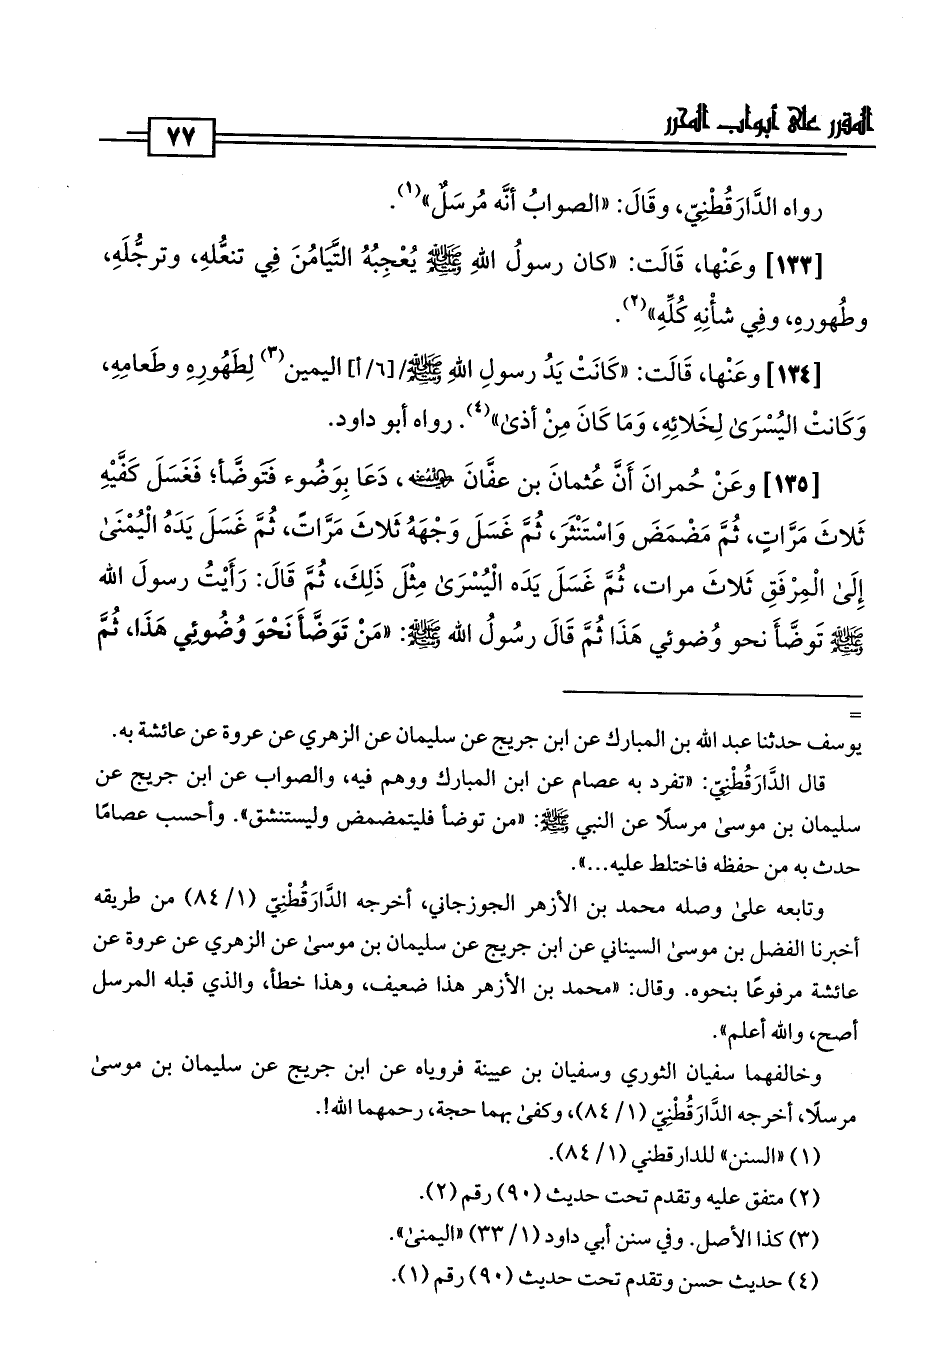 المقرر على أبواب المحرر
٧٧
رواه الدَّارَقُطْنِيّ، وقَالَ: «الصوابُ أنَّه مُرسَلٌ»(١).
[١٣٣] وعَنْها، قَالَت: «كان رسولُ اللهِ ﷺ يُعْجِبُهُ التَّيَامُنَ فِي تنعُّلهِ، وترجُّلَهِ،
وطُهورهِ، وفِي شأنِهِ كُلِّهِ»(٢).
[١٣٤] وعَنْها، قَالَت: «كَانَتْ يَدُ رسولِ اللهِ ﷺ/[٦/أ] اليمين(٣) لِطَهُورِهِ وطَعامِهِ،
وَكَانتْ اليُسْرَىٰ لِخَلائِهِ، وَمَا كَانَ مِنْ أذىٰ»(٤). رواه أبو داود.
[١٣٥] وعَنْ حُمرانَ أنَّ عُثمانَ بن عفَّانَ رضي الله عنه، دَعَا بِوَضُوء فَتَوضَّأ؛ فَغَسَلَ كَفَّيْهِ
ثَلاثَ مَرَّاتٍ، ثُمَّ مَضْمَضَ وَاسْتَنْثَرَ، ثُمَّ غَسَلَ وَجْهَهُ ثَلاثَ مَرَّاتٍ، ثُمَّ غَسَلَ يَدَهُ الْيُمْنَىٰ
إِلَىٰ الْمِرْفَقِ ثَلاثَ مرات، ثُمَّ غَسَلَ يَدَه الْيُسْرَىٰ مِثْلَ ذَلِكَ، ثُمَّ قَالَ: رَأَيْتُ رسولَ الله
ﷺ تَوضَّأَ نحو وُضوئي هَذَا ثُمَّ قَالَ رسُولُ الله ﷺ: «مَنْ تَوَضَّأَ نَحْوَ وُضُوئِي هَذَا، ثُمَّ
=
يوسف حدثنا عبد الله بن المبارك عن ابن جريج عن سليمان عن الزهري عن عروة عن عائشة به.
قال الدَّارَقُطْنِيّ: «تفرد به عصام عن ابن المبارك ووهم فيه، والصواب عن ابن جريج عن
سليمان بن موسىٰ مرسلًا عن النبي ﷺ: «من توضأ فليتمضمض وليستنشق». وأحسب عصامًا
حدث به من حفظه فاختلط عليه...».
وتابعه علىٰ وصله محمد بن الأزهر الجوزجاني، أخرجه الدَّارَقُطْنِيّ (١/ ٨٤) من طريقه
أخبرنا الفضل بن موسىٰ السيناني عن ابن جريج عن سليمان بن موسىٰ عن الزهري عن عروة عن
عائشة مرفوعًا بنحوه. وقال: «محمد بن الأزهر هذا ضعيف، وهذا خطأ، والذي قبله المرسل
أصح، والله أعلم».
وخالفهما سفيان الثوري وسفيان بن عيينة فروياه عن ابن جريج عن سليمان بن موسىٰ
مرسلًا، أخرجه الدَّارَقُطْنِيّ (١/ ٨٤)، وكفىٰ بهما حجة، رحمهما الله!.
(١) «السنن» للدارقطني (١/ ٨٤).
(٢) متفق عليه وتقدم تحت حديث (٩٠) رقم (٢).
(٣) كذا الأصل. وفي سنن أبي داود (١/ ٣٣) «اليمنىٰ».
(٤) حديث حسن وتقدم تحت حديث (٩٠) رقم (١).